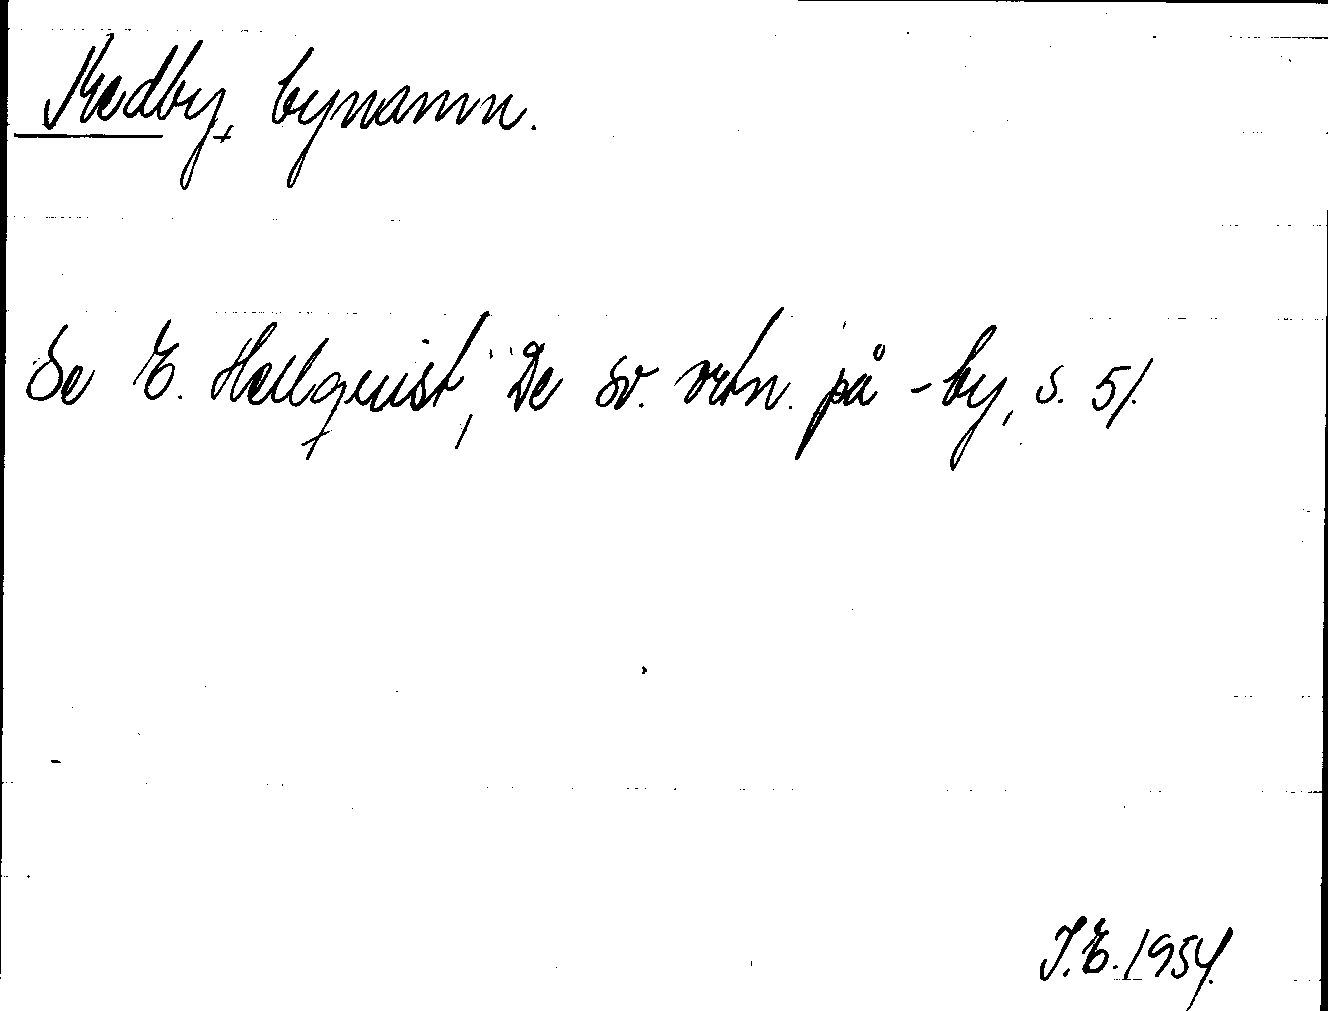 Kedby, bynamn.
Se E. Hellquist, De sv. ortn. på -by, s. 51.
J.E. 1954.